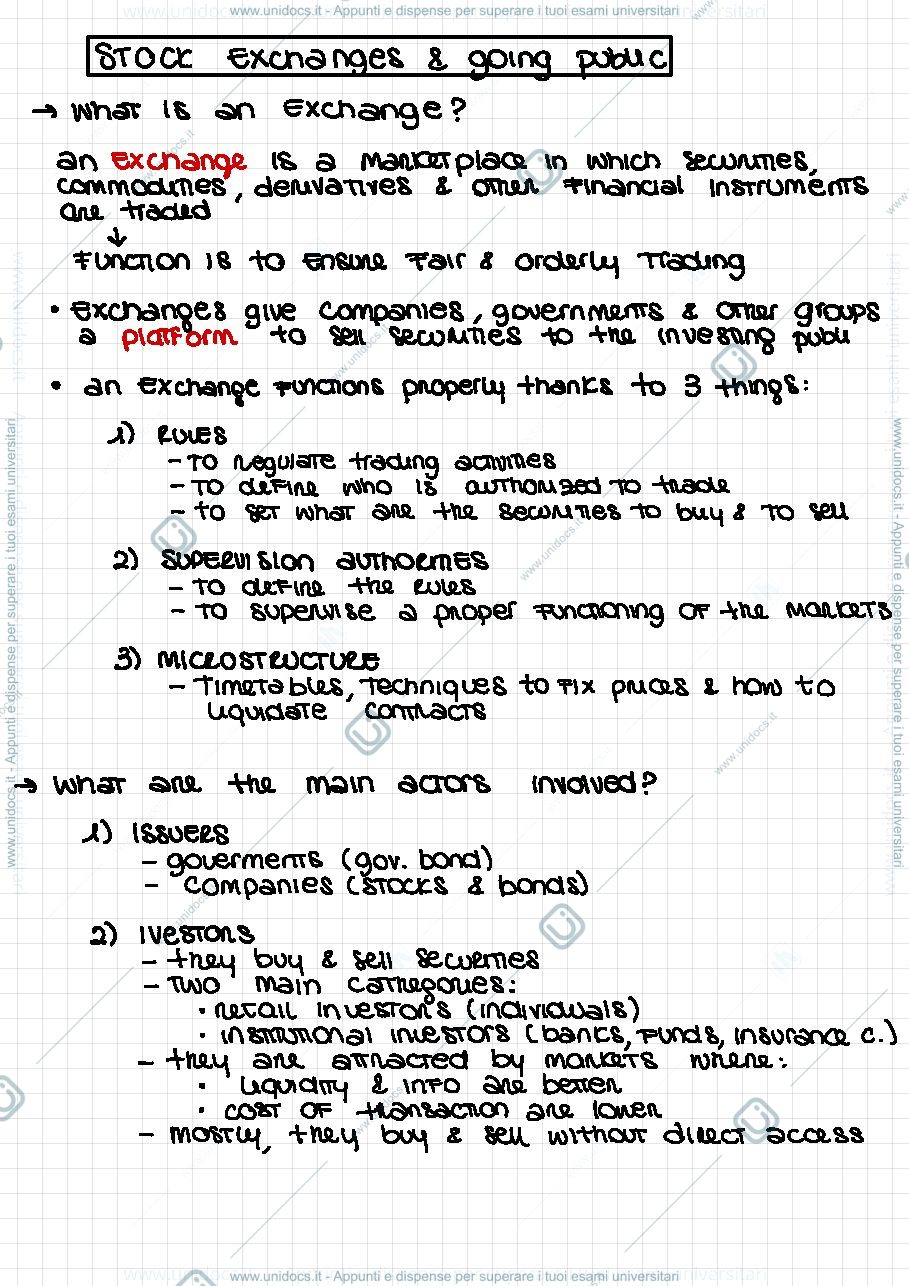 www.unidocs.it - Appunti e dispense per superare i tuoi esami universitari
STOCK Exchanges & going public
→ What is an Exchange?
an Exchange is a marketplace in which securities,
commodities, derivatives & other financial instruments
are traded
↓
Function is to ensure fair & orderly trading
• Exchanges give companies, governments & other groups
a platform to sell securities to the investing public
• an Exchange functions properly thanks to 3 things:
1) RULES
- to regulate trading activities
- to define who is authorized to trade
- to set what are the securities to buy & to sell
2) SUPERVISION AUTHORITIES
- to define the rules
- to supervise a proper functioning of the markets
3) MICROSTRUCTURE
- Timetables, techniques to fix prices & how to
liquidate contracts
→ What are the main actors involved?
1) ISSUERS
- goverments (gov. bond)
- companies (stocks & bonds)
2) IVESTORS
- they buy & sell securities
- two main cathegories:
• retail investors (individuals)
• institutional investors (banks, funds, insurance c.)
- they are attracted by markets where:
• liquidity & info are better
• cost of transaction are lower
- mostly, they buy & sell without direct access
www.unidocs.it - Appunti e dispense per superare i tuoi esami universitari
www.unidocs.it - Appunti e dispense per superare i tuoi esami universitari
www.unidocs.it - Appunti e dispense per superare i tuoi esami universitari